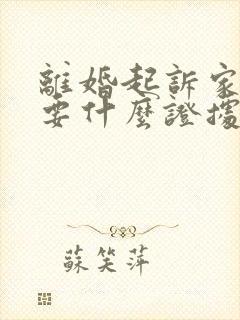 離婚起訴家
要什麼證據
蘇笑萍